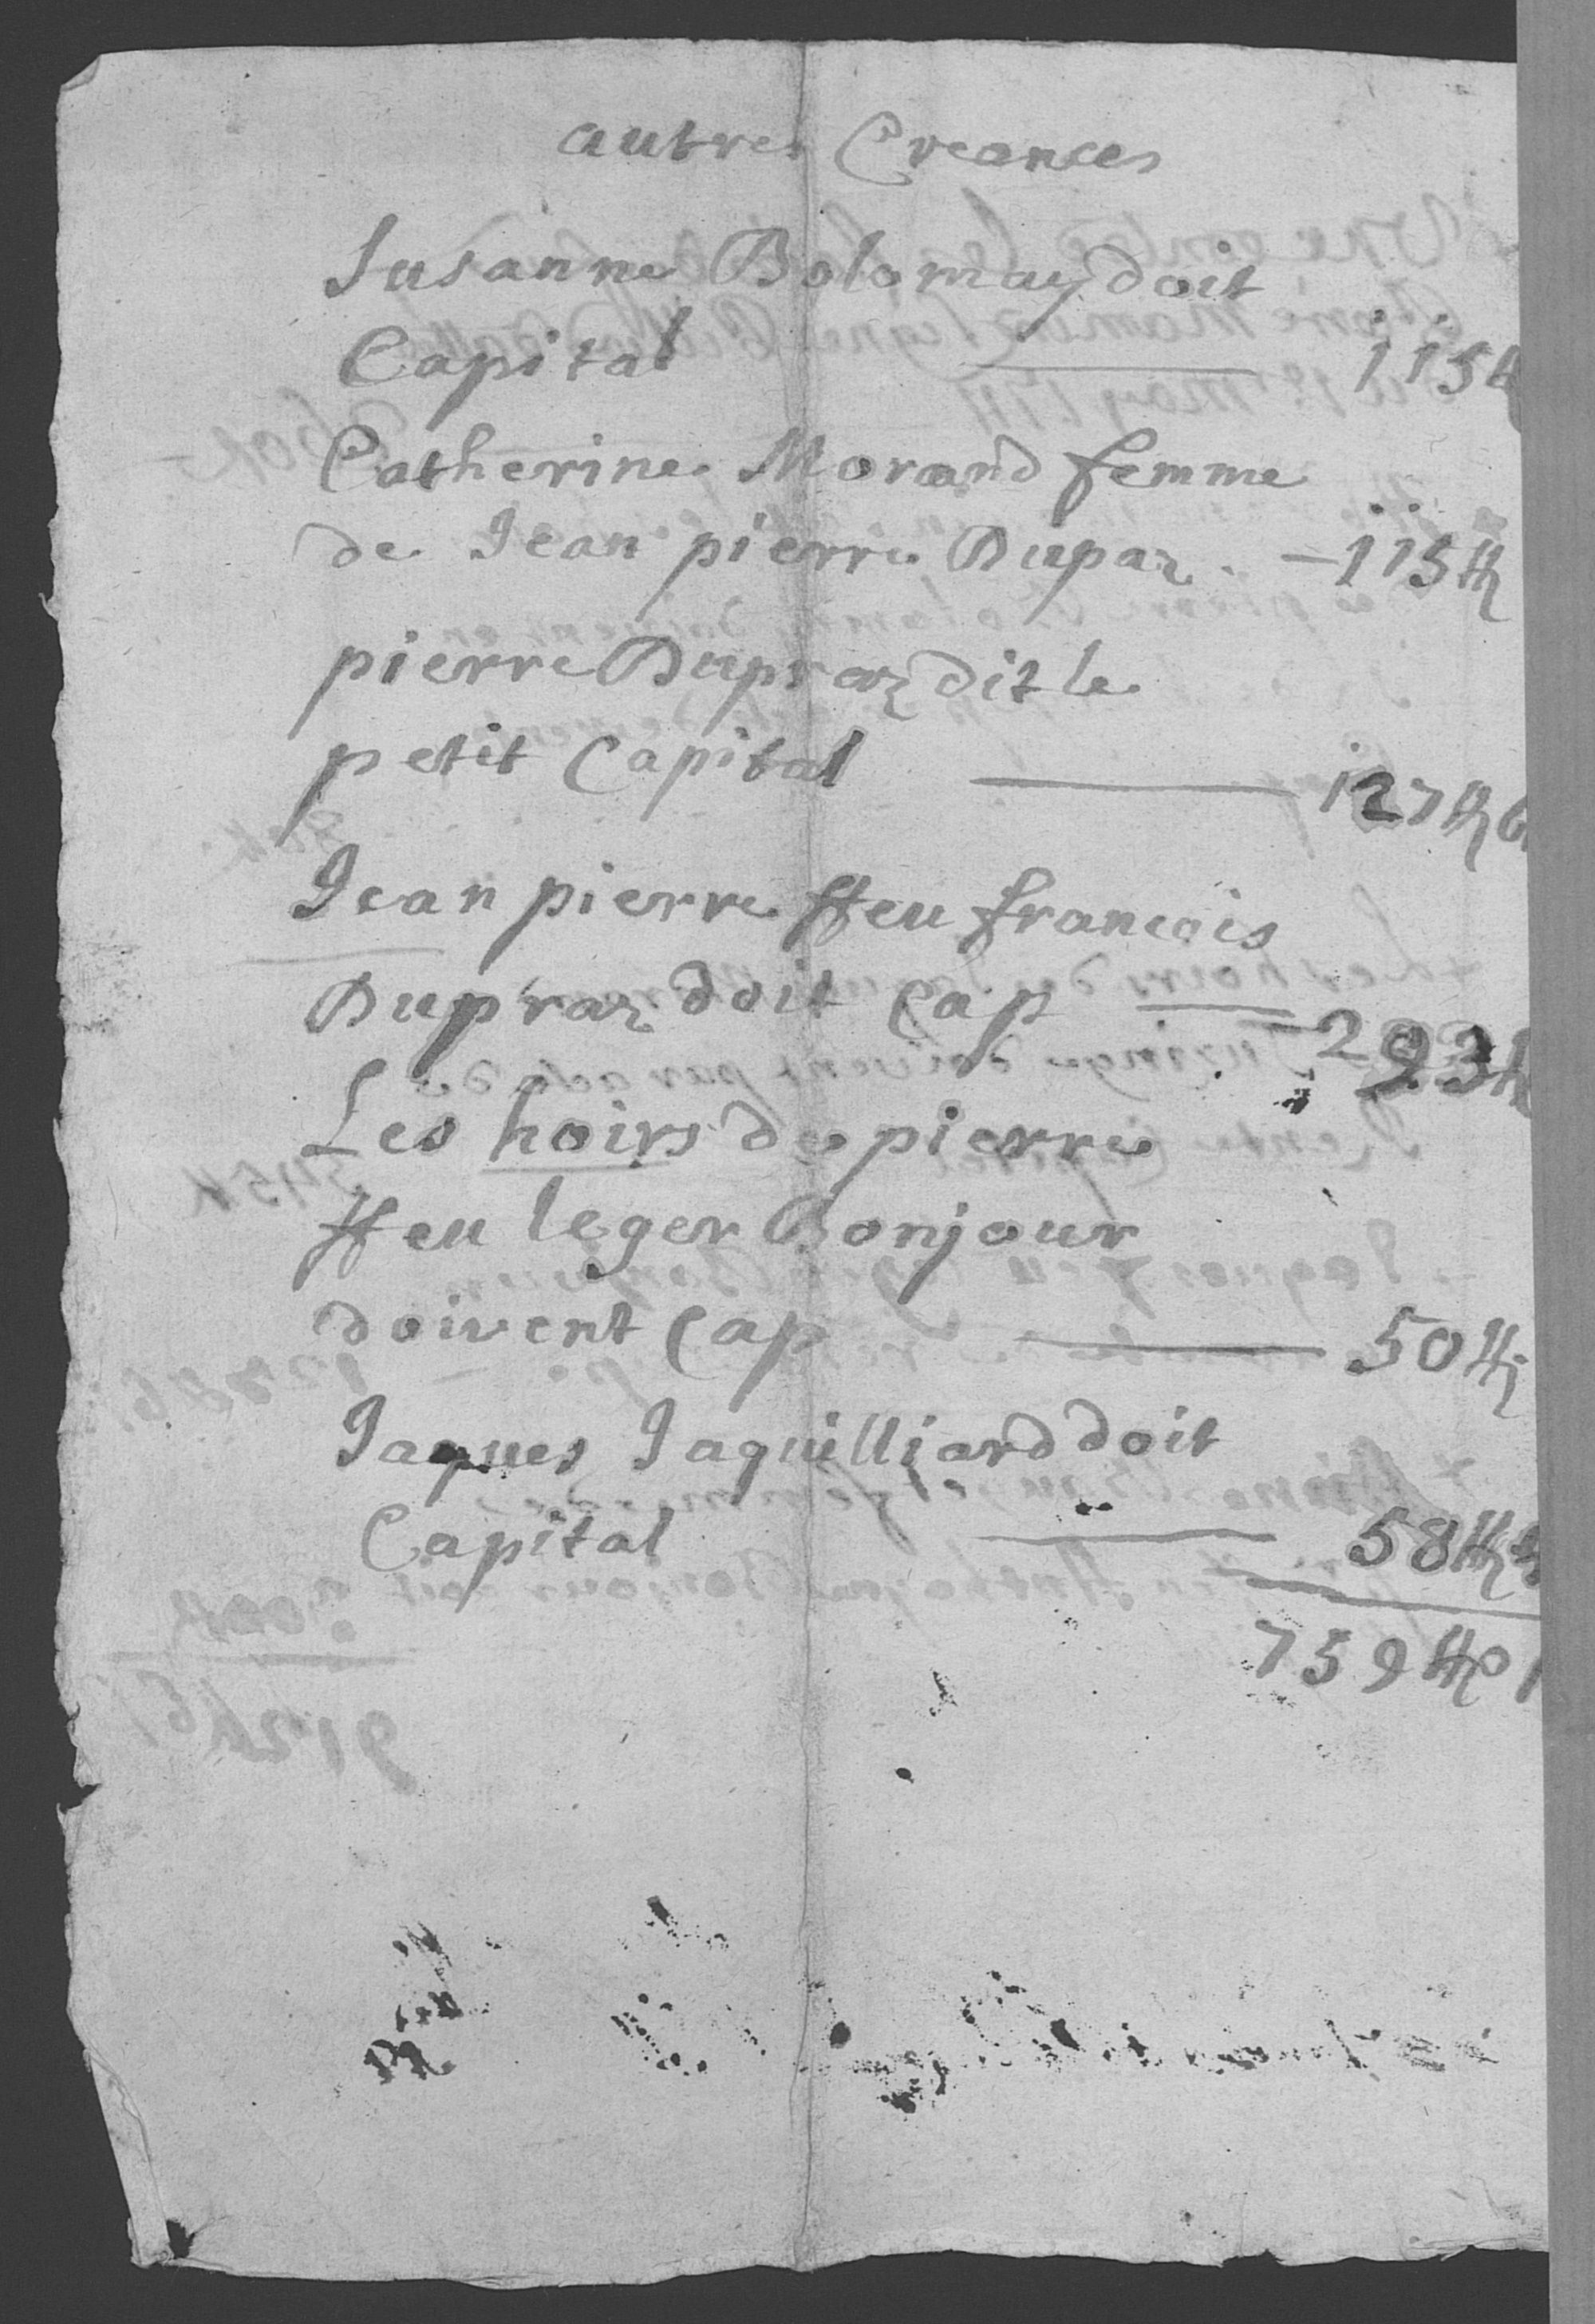 autres Creances
Susanne Bolomay doit
Capital 115 ₶
Catherine Morand femme
de Jean pierre Dupaz - 115 ₶
pierre Dupraz dit le
petit Capital 127 ₶ 6
Jean pierre ffeu francois
Dupraz doit Cap 293 ₶
Les hoirs de pierre
ffeu leger Bonjour
doivent Cap 50 ₶
Jaques Jaquilliard doit
Capital 58 ₶
759 ₶